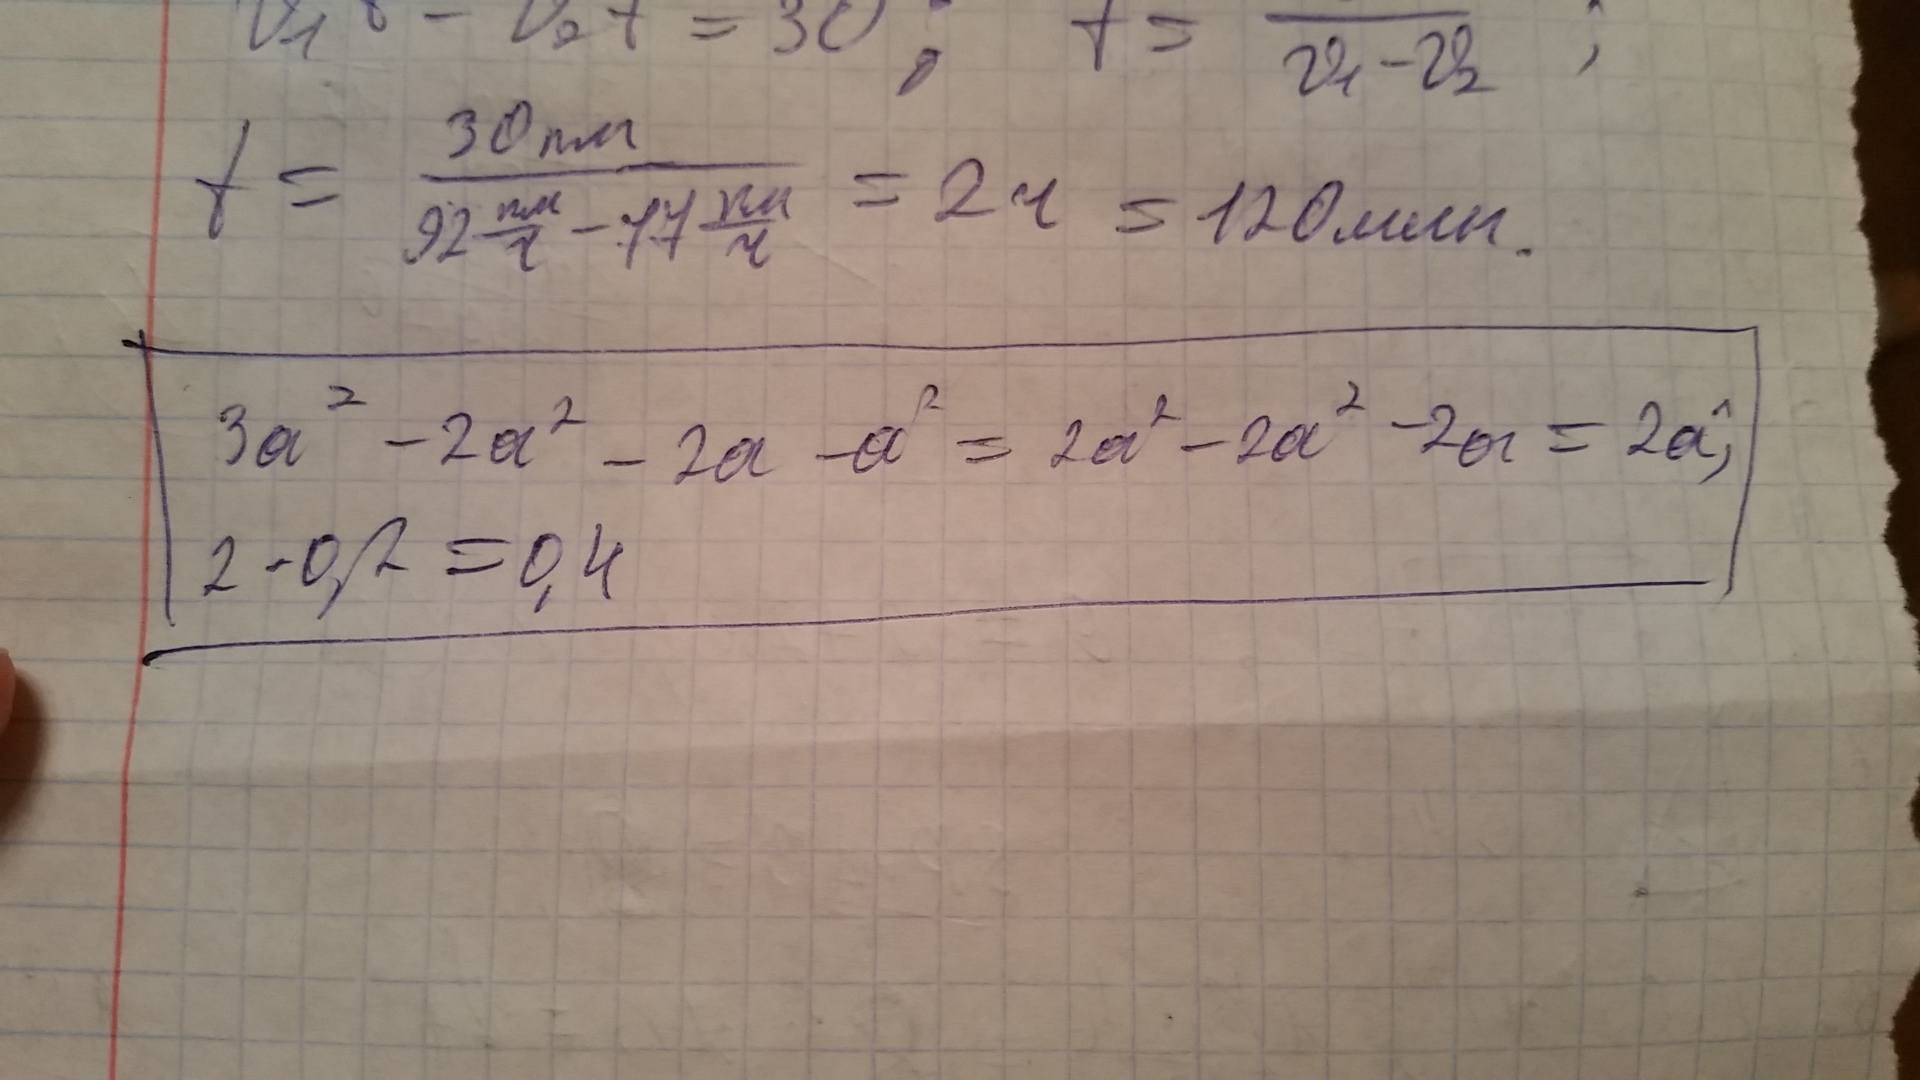 v₁t - v₂t = 30; t = ―/(v₁ - v₂);
t = 30 км/(92 км/ч - 77 км/ч) = 2 ч = 120 мин.
3a² - 2a² - 2a - a² = 2a² - 2a² - 2a = 2a;
2 · 0,2 = 0,4